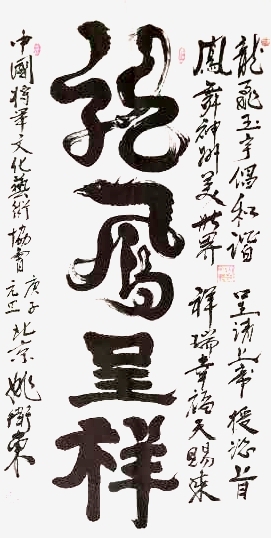 龍飛玉宇倡和諧 呈請上帝授旨
鳳舞神州美世界 祥瑞幸福天賜來
龍鳳呈祥
中國將軍文化藝術協會 庚子元旦 北京 姚衛東